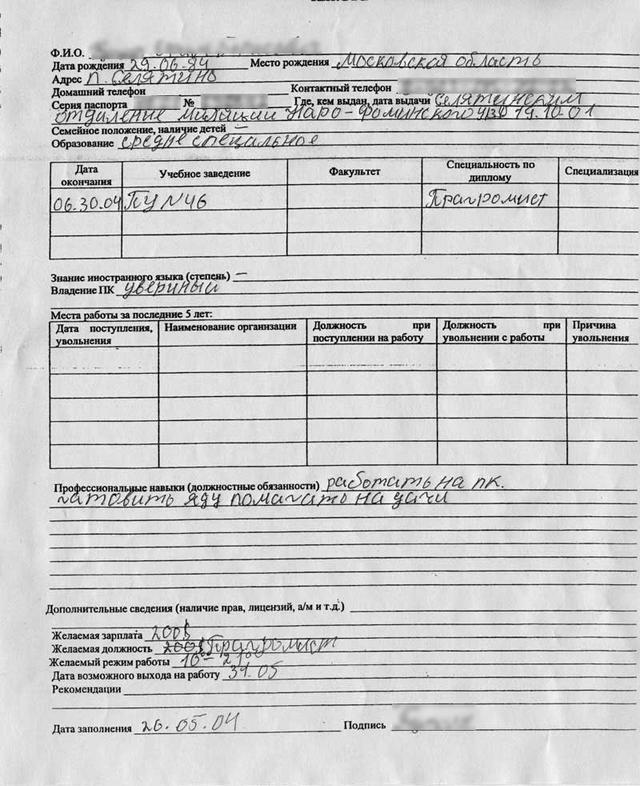 Ф.И.О.
Дата рождения 29.06.84 Место рождения Московская область
Адрес п. Селятино
Домашний телефон Контактный телефон
Серия паспорта № Где, кем выдан, дата выдачи Селятинским
отделение милиции Наро-Фоминского УВД 19.10.01
Семейное положение, наличие детей –
Образование средне специальное
Дата окончания Учебное заведение Факультет Специальность по диплому Специализация
06.30.04 ПУ №46 Праграмист
Знание иностранного языка (степень) –
Владение ПК увериный
Места работы за последние 5 лет:
Дата поступления, увольнения Наименование организации Должность при поступлении на работу Должность при увольнении с работы Причина увольнения
Профессиональные навыки (должностные обязанности) работать на пк.
гатовить яду помагать на дачи
Дополнительные сведения (наличие прав, лицензий, а/м и т.д.)
Желаемая зарплата 200$
Желаемая должность 200$ Праграмист
Желаемый режим работы 10-21
Дата возможного выхода на работу 31.05
Рекомендации
Дата заполнения 26.05.04 Подпись